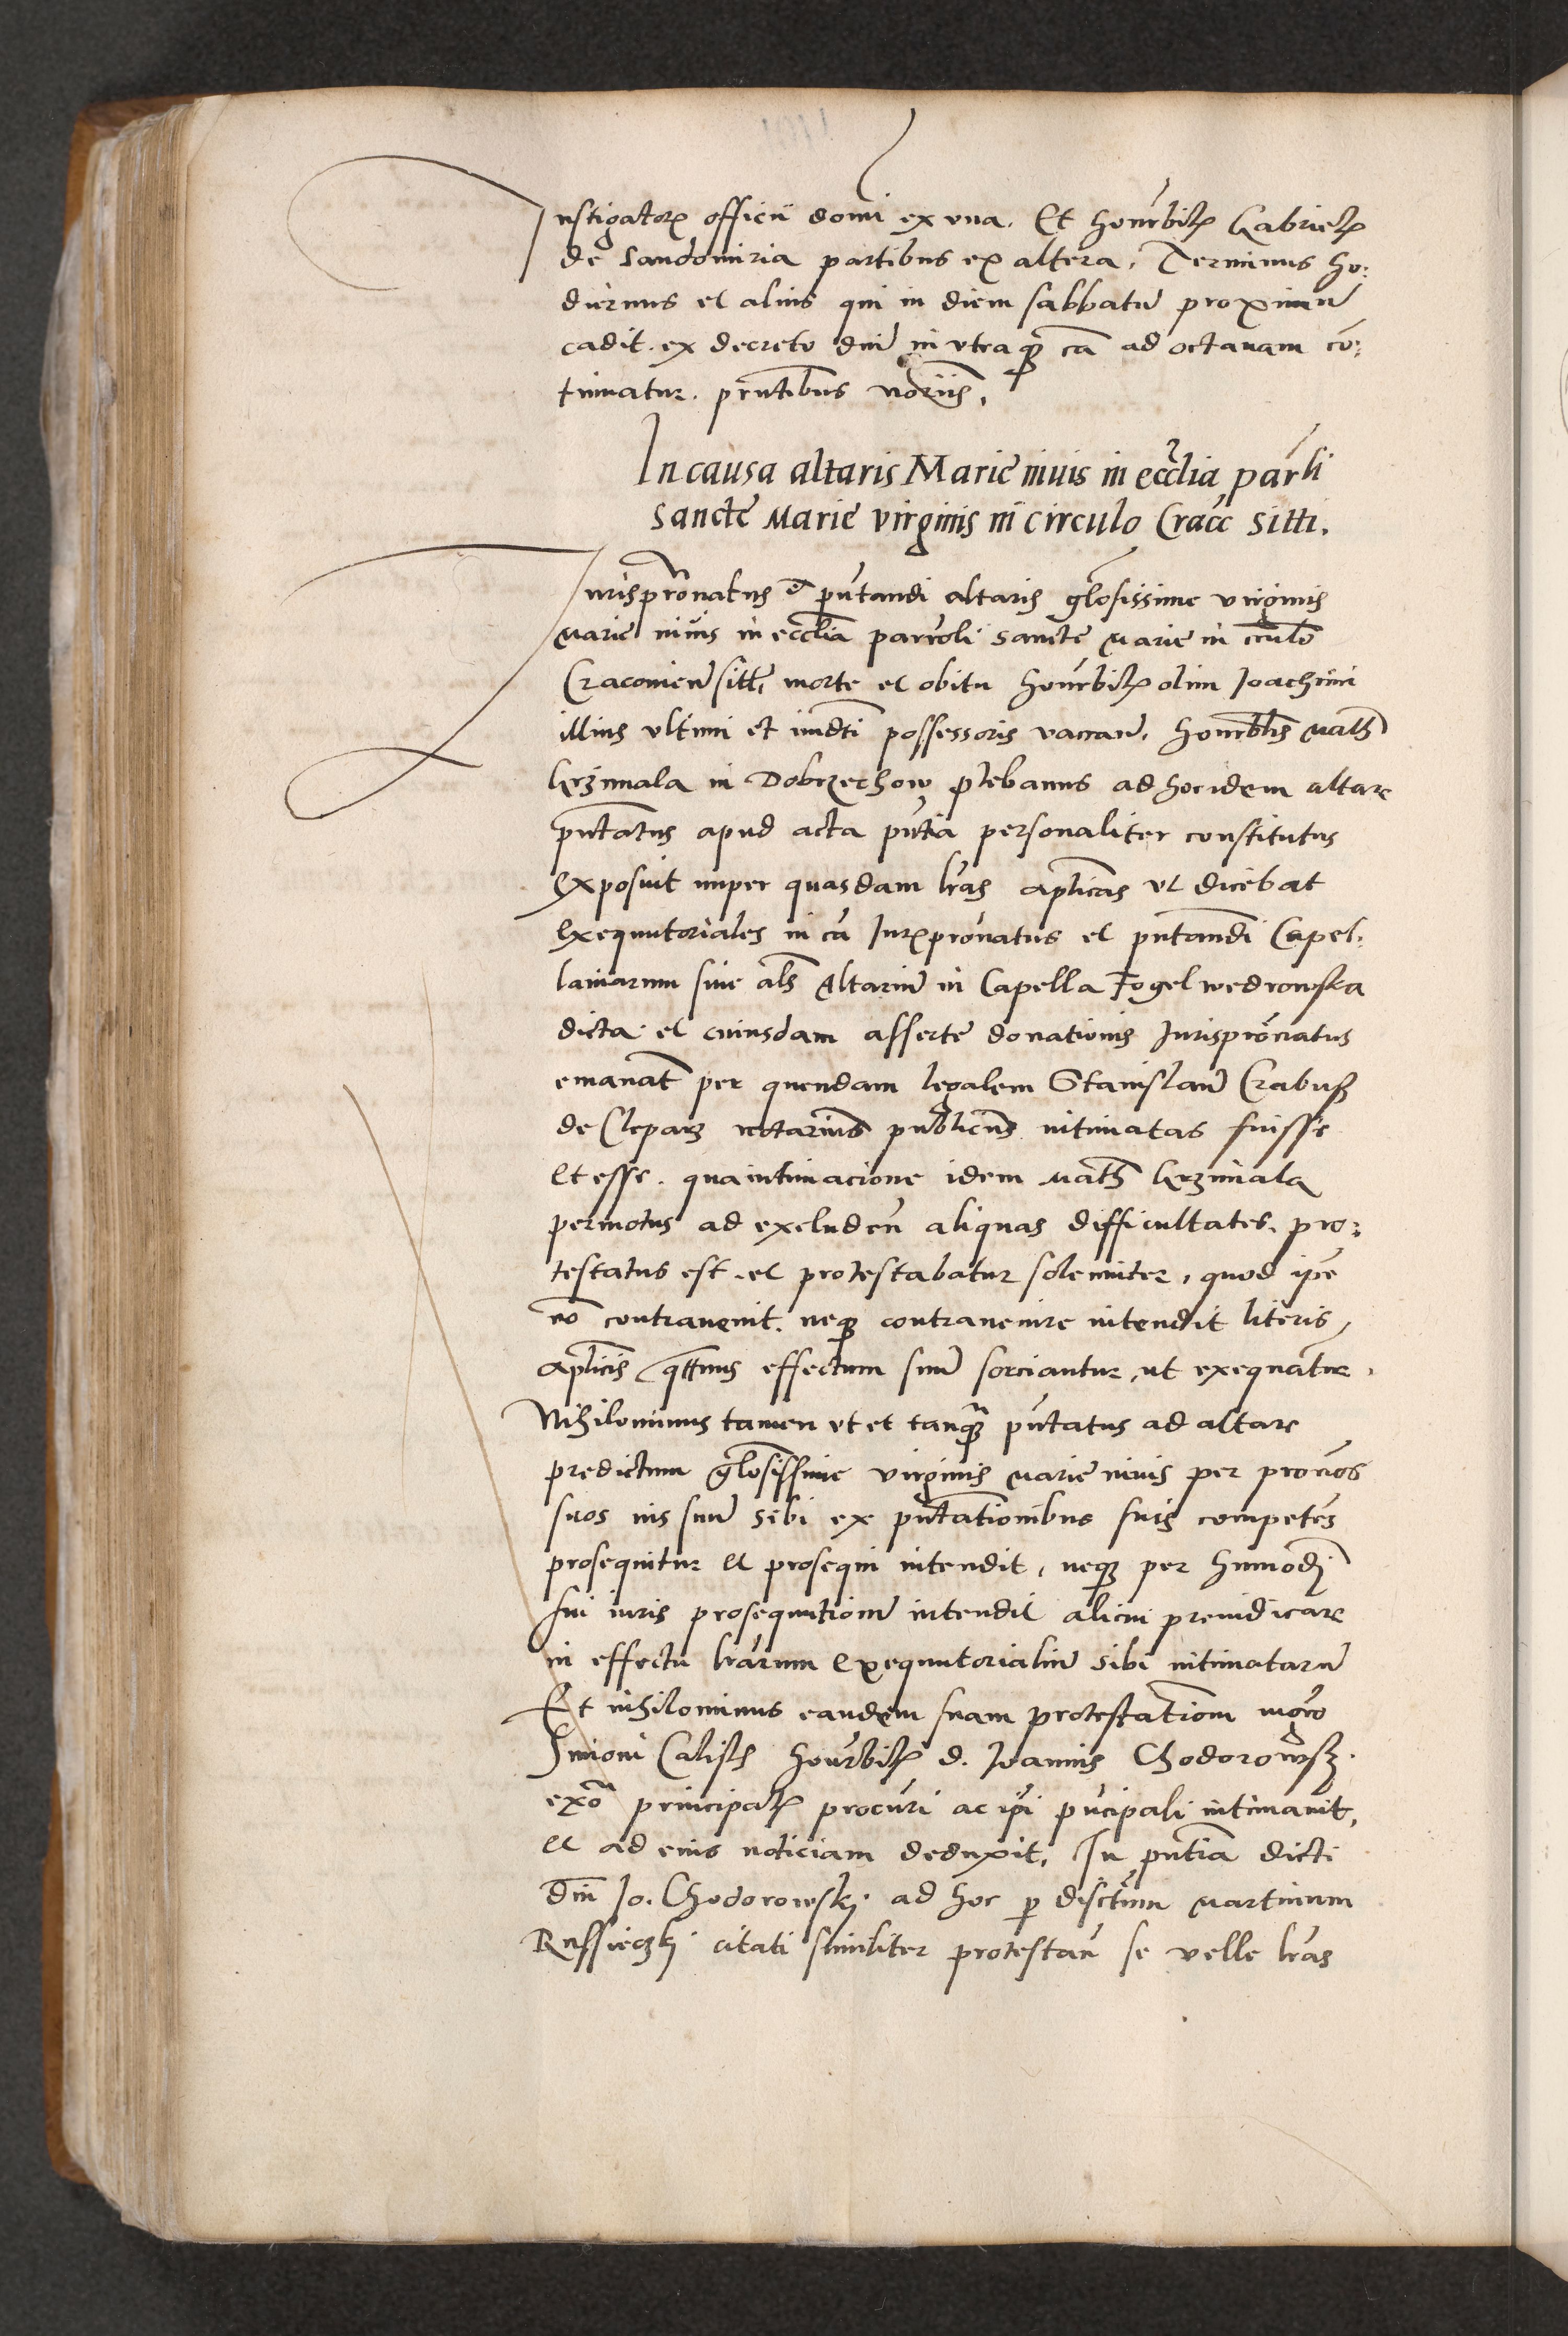 Instigatorē officii domi ex vna. Et honorabilē Gabrielē
de Sandomiria partibus ex altera. Terminus ho:
diernus et alius qui in diem sabbatū proximū
cadit. ex decreto dni in vtraqȝ cā ad octauam cō:
tinuatur. pntibus notariis.
In causa altaris Marie niuis in eccłia parłi
Sancte Marie virginis in circulo Cracc sitti.
Jurispronatus et pntandi altaris głosissime virginis
Marie niuis in eccłia parroli Sancte Marie in circulo
Cracouien sitti, morte et obitu honorabilis olim Joachimi
illius vltimi et imdti possessoris vacan. honorabilis Mathś
Grzimala in Dobrzechow plebanus ad hoc idem altare
pntatus apud acta pntia personaliter constitutus
exposuit nuper quasdam lras aplicas vt dicebat
Exequutoriales in cā Jurispronatus et pntandi Capel:
laniarum siue als Altariū in Capella Fogelwedrowska
dicta et cuiusdam asserte donationis Jurispronatus
emanat per quendam legalem Stanislaū Crabusȝ
de Cleparz notariūs publicus intimatas fuisse
et esse. qua intimacione idem Mathś Grzimala
permotus ad excluden aliquas difficultates. pro:
testatus est. et protestabatur solenniter, quod ipe
nō contrauenit. neqȝ contrauenire intendit literis
aplicis qttinus effectum suū sorciantur, ut exequātur.
Nihilominus tamen vt et tanqȝ pntatus ad altare
predictum głosissime virginis Marie niuis per pronos
suos ius suū sibi ex pntationibus suis competens
prosequitur et prosequi intendit, neqȝ per huiusmodi
sui iuris prosequutionē intendit alicui preiudicare
in effectu lrarum exequutorialiū sibi intimatarū
Et nihilominus eandem suam protestationem mgro
Simoni Calisch honorabilis d. Joannis Chodorowsk.
exo principalis procuri ac ipi pncipali intimauit,
et ad eius noticiam deduxit. In pntia dicti
dni Jo. Chodorowski. ad hoc p discrtum Martinum
Russieczki citati similiter protestan se velle lras